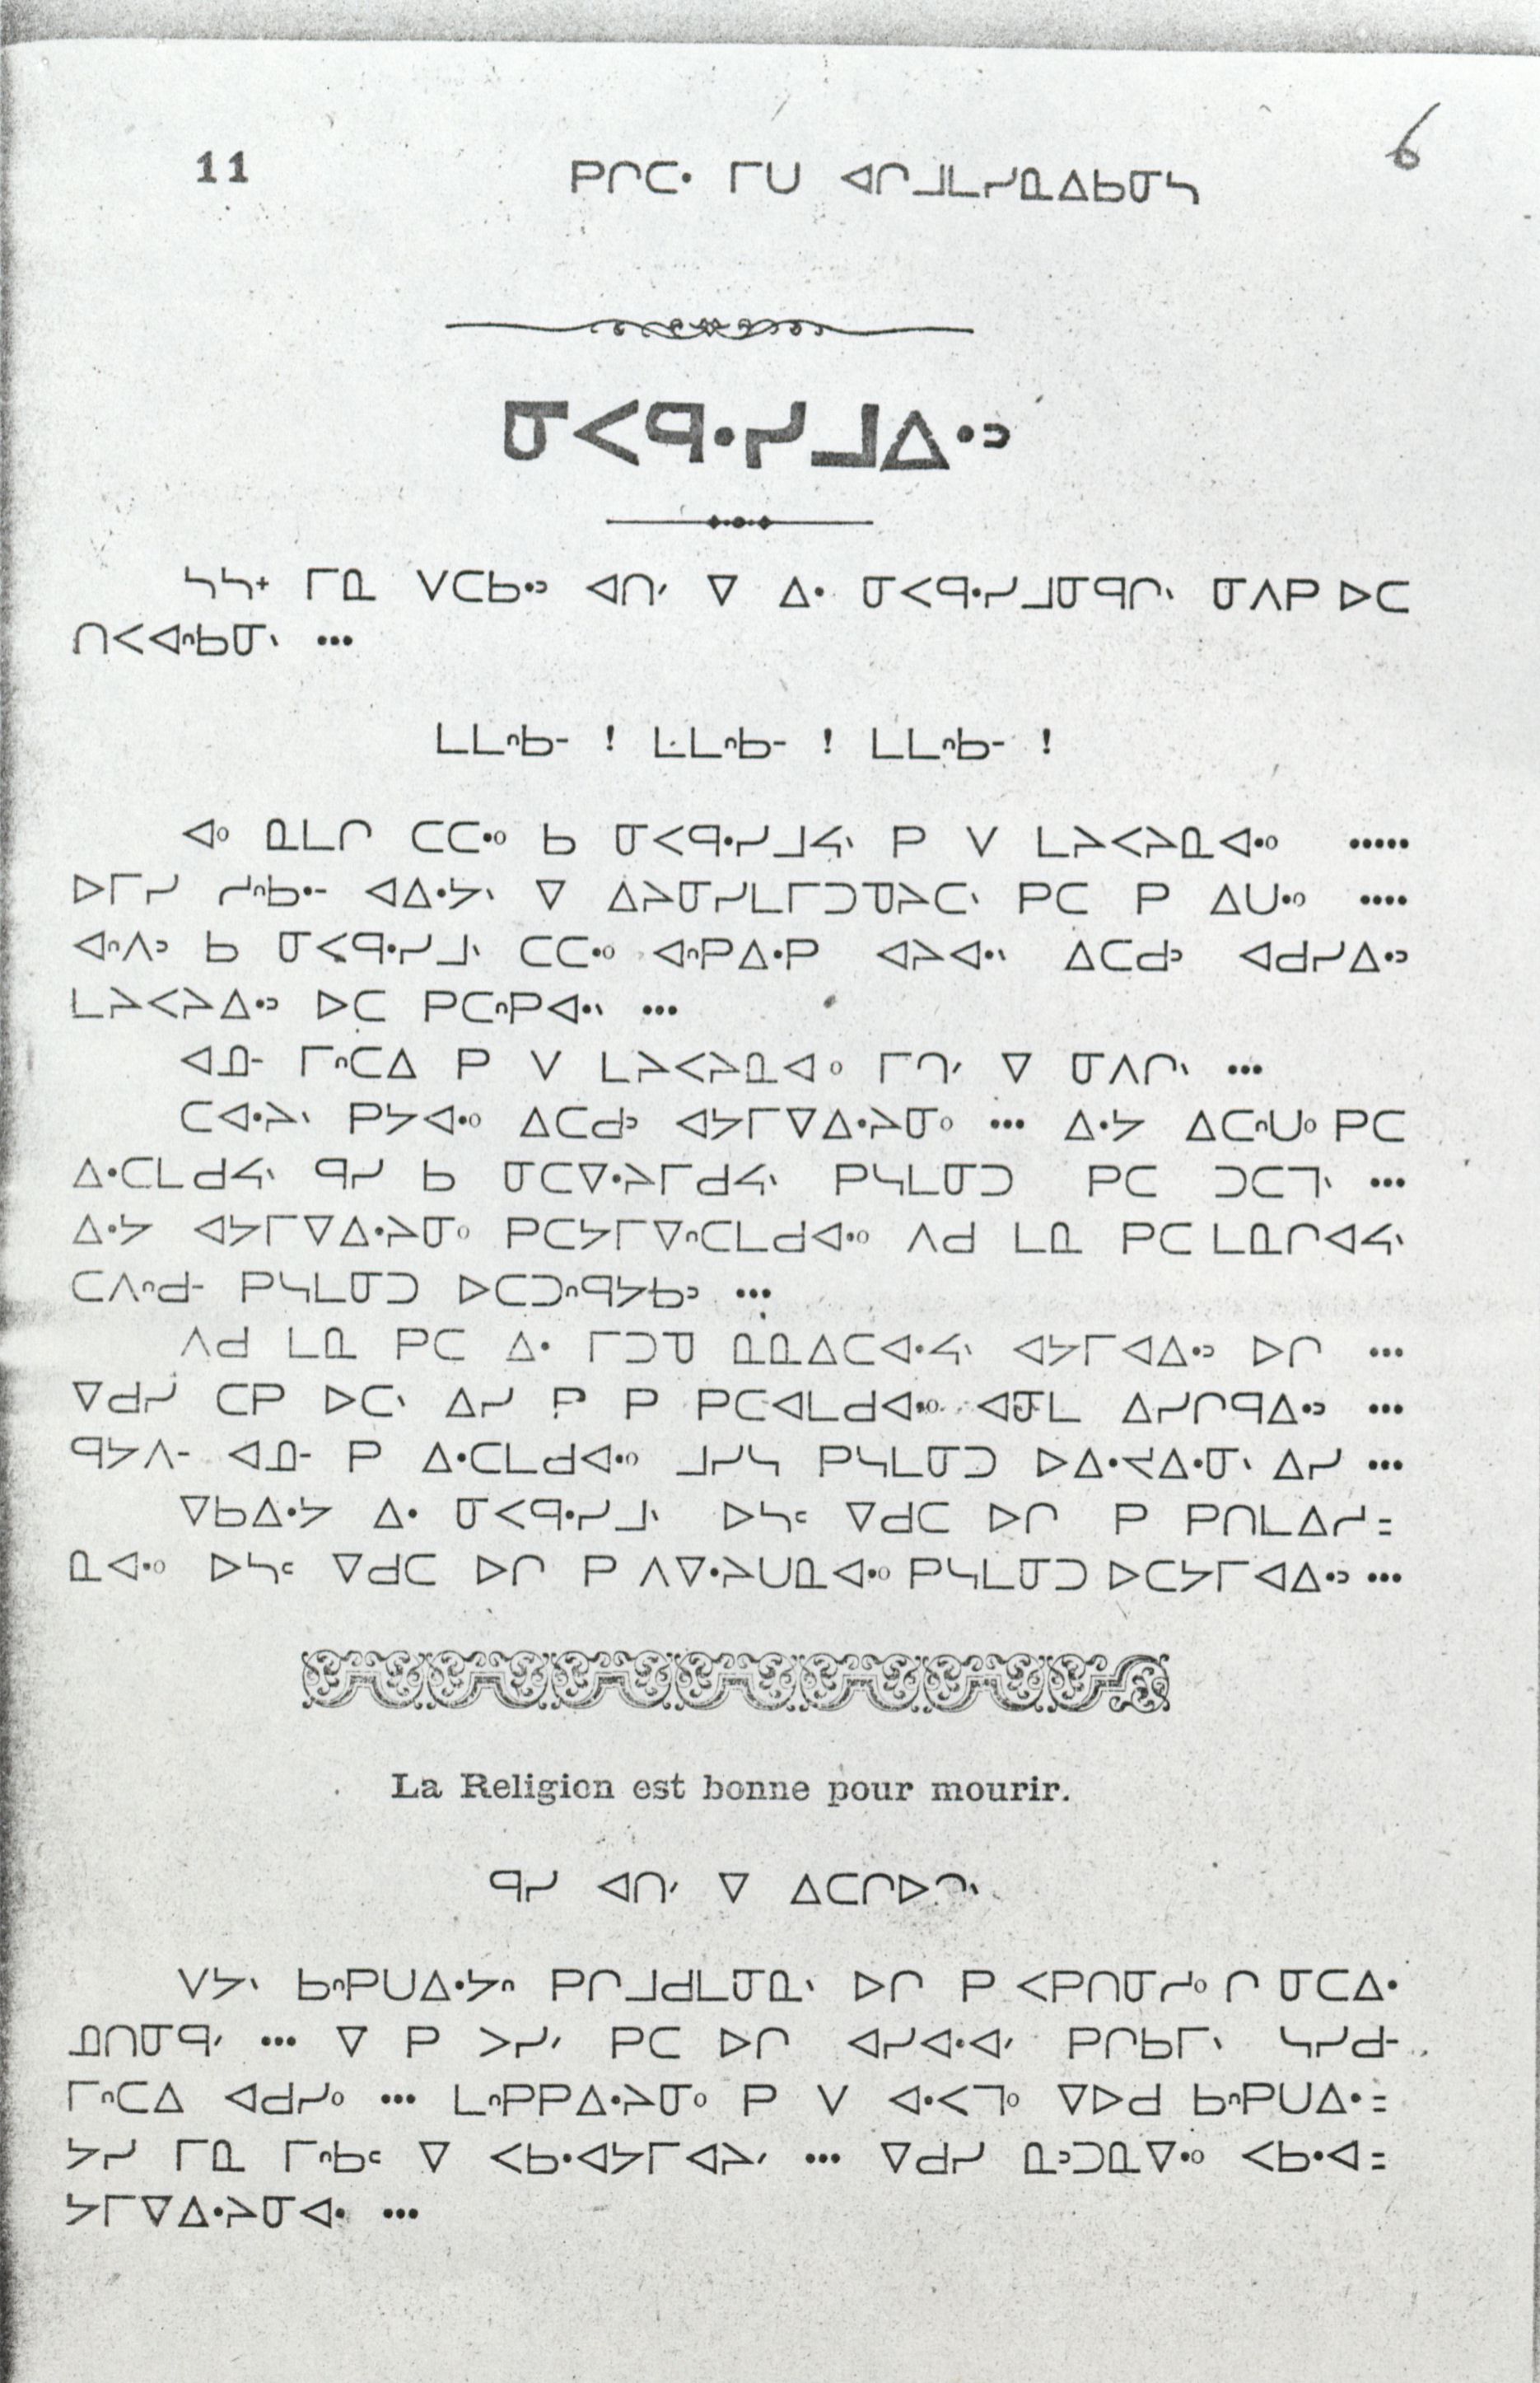 11 ᑭᒋᑕᐧ ᒥᑌ ᐊᒋᒧᒪᓯᓇᐃᑲᓂᓴ 6
ᓂᐸᑫᐧᓯᒧᐃᐧᐣ
ᓴᓴᕀ ᒥᓇ ᐯᑕᑲᐧᐣ ᐊᑎᐟ ᐁ ᐃᐧ ᓂᐸᑫᐧᓯᒧᓂᑫᒋᐠ ᓂᐱᑭ ᐅᑕ
ᑎᐸᐊᐢᑲᓂᐠ •••
ᒪᒪᐢᑲᐨ ! ᒪᒪᐢᑲᐨ ! ᒪᒪᐢᑲᐨ !
ᐊᐤ ᓇᒪᒋ ᑕᑕᐧᐤ ᑲ ᓂᐸᑫᐧᓯᒧᔭᐠ ᑭ ᐯ ᒪᔨᐸᔨᓇᐊᐧᐤ •••••
ᐅᒥᓯ ᓯᐢᑲᐧᐨ ᐊᐃᐧᔭᐠ ᐁ ᐃᔨᓂᓯᒪᒥᑐᑯᔨᑕᐠ ᑭᑕ ᑭ ᐃᑌᐧᐤ ••••
ᐊᐢᐱᐣ ᑲ ᓂᐸᑫᐧᓯᒧᐠ ᑕᑕᐧᐤ ᐊᐢᑭᐃᐧᑭ ᐊᔨᐊᐧᐠ ᐃᑕᑯᐣ ᐊᑯᓯᐃᐧᐣ
ᒪᔨᐸᔨᐃᐧᐣ ᐅᑕ ᑭᑕᐢᑭᐊᐧᐠ •••
ᐊᓄᐨ ᒥᐢᑕᐃ ᑭ ᐯ ᒪᔨᐸᔨᓇᐊᐤ ᒥᑎᐟ ᐁ ᓂᐱᒋᐠ •••
ᑕᐊᐧᔨᐠ ᑭᔭᐊᐧᐤ ᐃᑕᑯᐣ ᐊᔭᒥᐁᐃᐧᔨᓂᐤ ••• ᐃᐧᔭ ᐃᑕᐢᑌᐤ ᑭᑕ
ᐃᐧᑕᒪᑯᔭᐠ ᑫᓯ ᑲ ᓂᑕᐁᐧᔨᒥᑯᔭᐠ ᑭᓴᒪᓂᑐ ᑭᑕ ᑐᑕᒣᐠ •••
ᐃᐧᔭ ᐊᔭᒥᐁᐃᐧᔨᓂᐤ ᑭᑕᔭᒥᐁᐢᑕᒪᑯᐊᐧᐤ ᐱᑯ ᒪᓇ ᑭᑕ ᒪᓇᒋᐊᔭᐠ
ᑕᐱᐢᑯᐨ ᑭᓴᒪᓂᑐ ᐅᑕᑐᐢᑫᔭᑲᐣ •••
ᐱᑯ ᒪᓇ ᑭᑕ ᐃᐧ ᒥᑐᑯ ᓇᓇᐃᑕᐊᐧᔭᐠ ᐊᔭᒥᐊᐃᐧᐣ ᐅᒋ •••
ᐁᑯᓯ ᑕᑭ ᐅᑕᐠ ᐃᓯ ᑭ ᑭ ᑭᑕᐊᒪᑯᐊᐧᐤ ᐊᓂᒪ ᐃᓯᒋᑫᐃᐧᐣ •••
ᑫᔭᐱᐨ ᐊᓄᐨ ᑭ ᐃᐧᑕᒪᑯᐊᐧᐤ ᒧᓯᓴ ᑭᓴᒪᓂᑐ ᐅᐃᐧᔫᐃᐧᓂᐠ ᐃᓯ •••
ᐁᑲᐃᐧᔭ ᐃᐧ ᓂᐸᑫᐧᓯᒧᐠ ᐅᓴᑦ ᐁᑯᑕ ᐅᒋ ᑭ ᑭᑎᒪᐃᓯ=
ᓇᐊᐧᐤ ᐅᓴᑦ ᐁᑯᑕ ᐅᒋ ᑭ ᐱᐁᐧᔨᑌᓇᐊᐧᐤ ᑭᓴᒪᓂᑐ ᐅᑕᔭᒥᐊᐃᐧᐣ •••
La Religion est bonne pour mourir.
ᑫᓯ ᐊᑎᐟ ᐁ ᐃᑕᒋᐅᑐᐠ
ᐯᔭᐠ ᑲᐢᑭᑌᐃᐧᔭᐢ ᑭᒋᒧᑯᒪᓂᓇᐠ ᐅᒋ ᑭ ᐸᑭᑎᓂᓱᐤ ᒋ ᓂᑕᐃᐧ
ᓄᑎᓂᑫᐟ ••• ᐁ ᑭ ᐳᓯᐟ ᑭᑕ ᐅᒋ ᐊᓯᐊᐧᐊᐟ ᑭᒋᑲᒥᐠ ᓴᓯᑯᐨ
ᒥᐢᑕᐃ ᐊᑯᓯᐤ ••• ᒪᐢᑭᑭᐃᐧᔨᓂᐤ ᑭ ᐯ ᐊᐧᐸᒣᐤ ᐁᐅᑯ ᑲᐢᑭᑌᐃᐧ=
ᔭᓯ ᒥᓇ ᒥᐢᑲᑦ ᐁ ᐸᑲᐧᐊᔭᒥᐊᔨᐟ ••• ᐁᑯᓯ ᓇᐣᑐᓇᐁᐧᐤ ᐸᑲᐧᐊ=
ᔭᒥᐁᐃᐧᔨᓂᐊᐧ •••